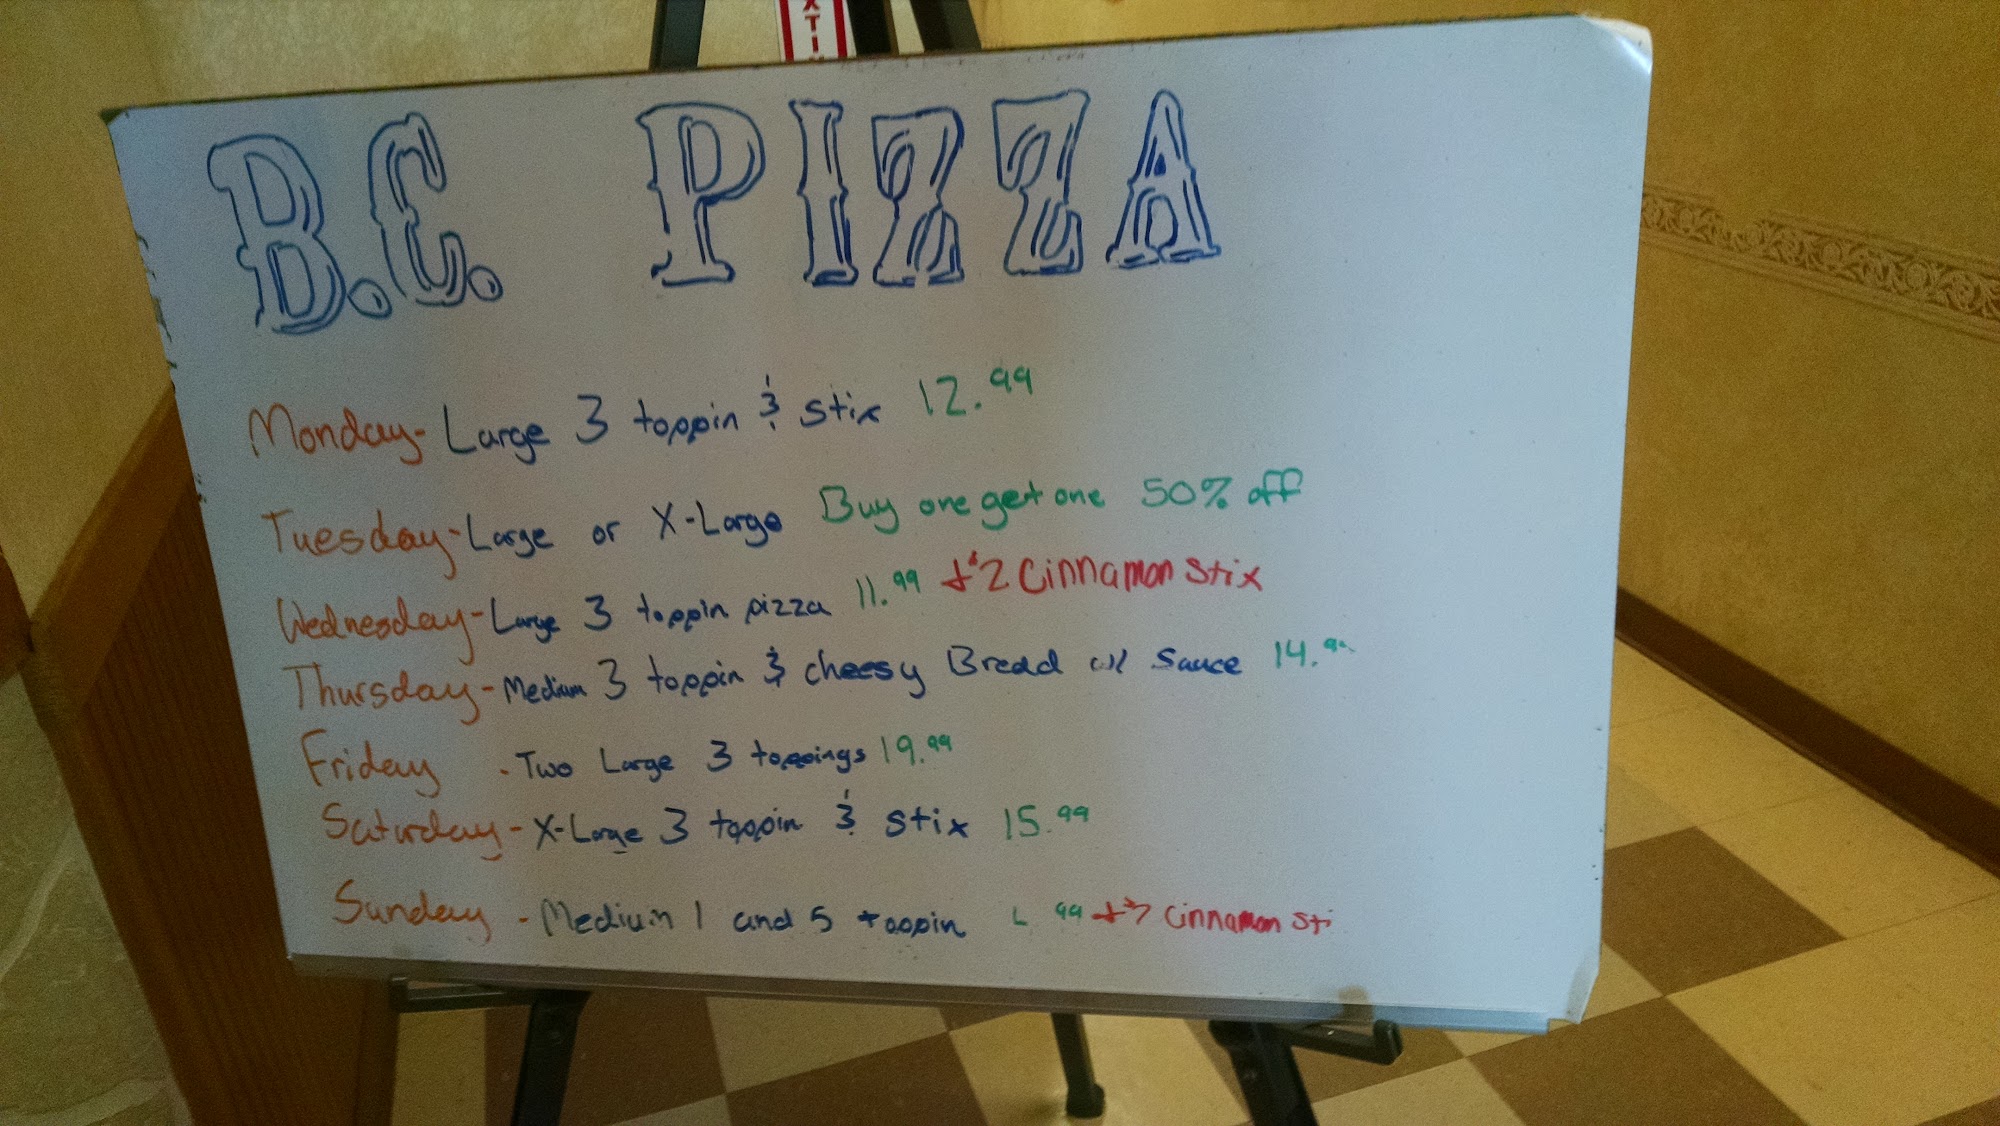 XTI
B.C. PIZZA
Monday- Large 3 toppin & stix 12.99
Tuesday- Large or X-Large Buy one get one 50% off
Wednesday- Large 3 toppin pizza 11.99 +$2 Cinnamon Stix
Thursday- Medium 3 toppin & cheesy Bread w/ Sauce 14.
Friday - Two Large 3 toppings 19.99
Saturday- X-Large 3 toppin & stix 15.99
Sunday - Medium 1 and 5 toppin 99 Cinnamon Sti